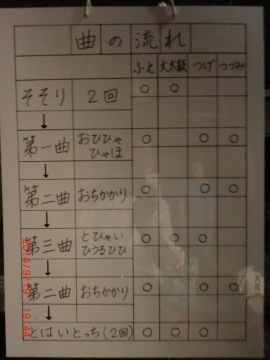 曲の流れ
ふえ 大太鼓 つけ つづみ
そそり 2回 ○ ○
↓
第一曲 おひひゃ ○ ○ ○
ひゃほ
↓
第二曲 おちかかり ○ ○ ○
↓
第三曲 とひゃい ○ ○ ○
ひつろひひ
↓
第二曲 おちかかり ○ ○ ○
とはいとっち(2回) ○ ○ ○